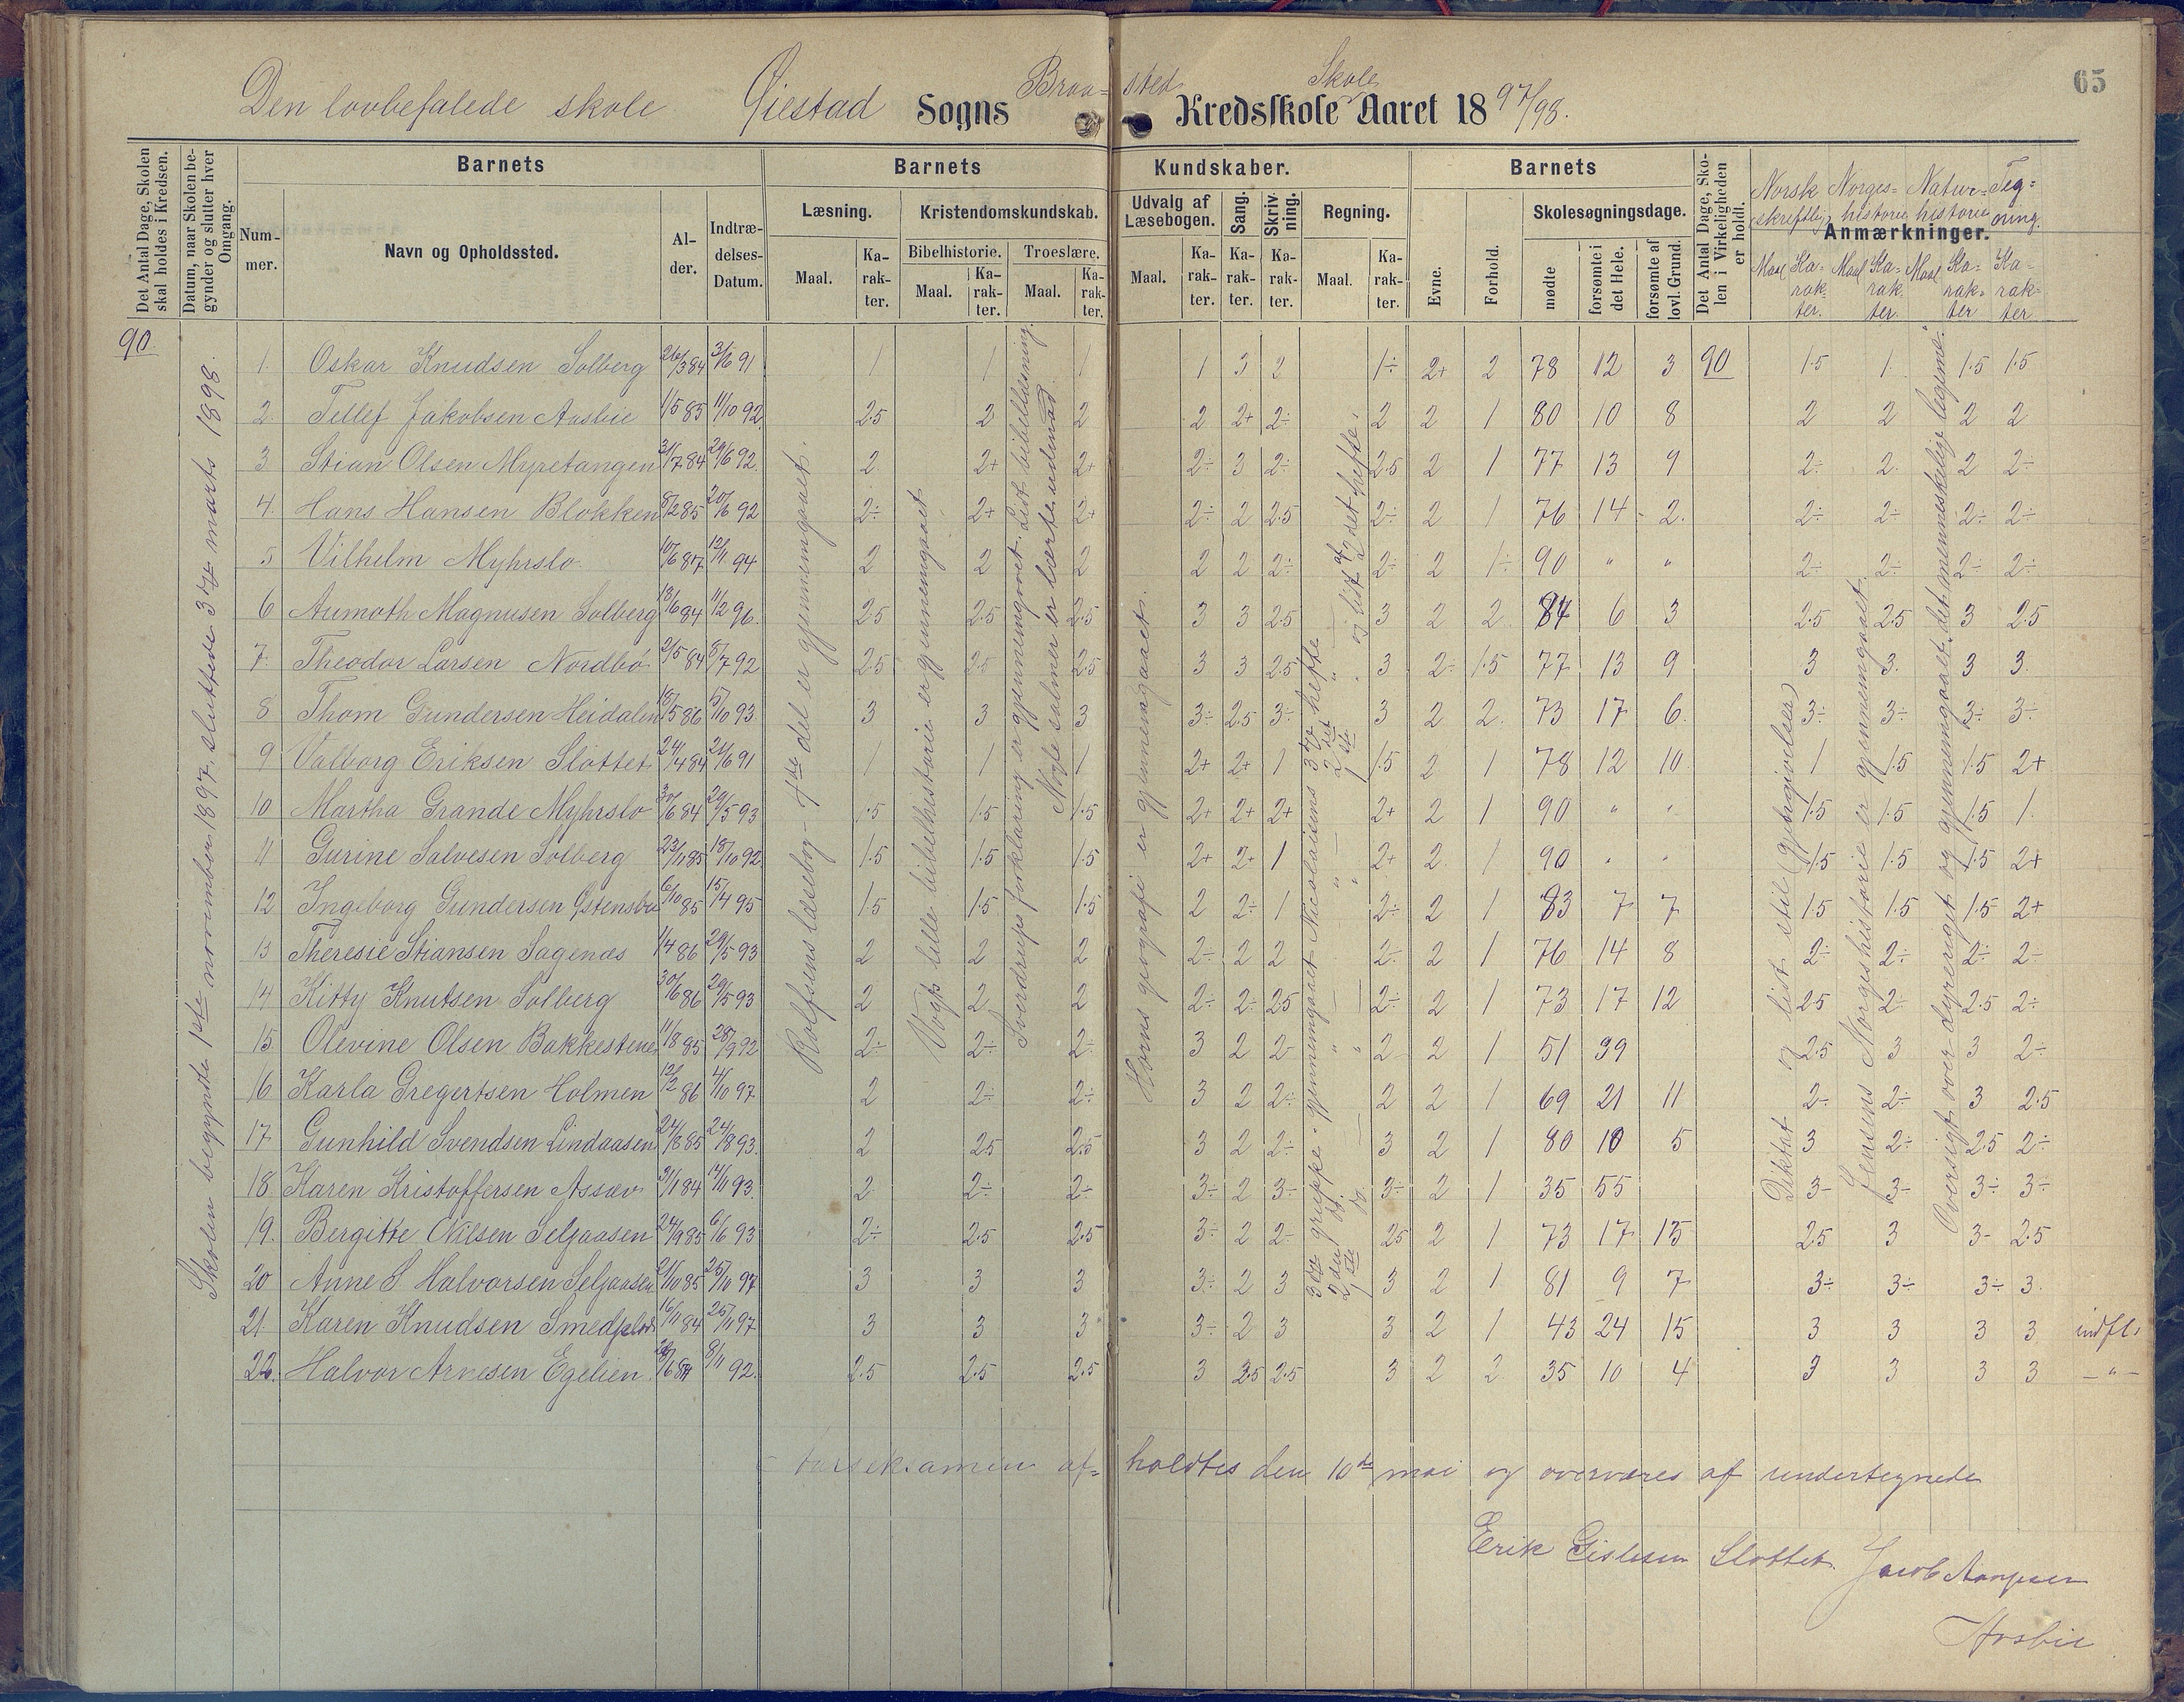 65
Den lovbefalede skole Øiestad Sogns Braa-sted Skole Kredsskole Aaret 1897/98.
Det Antal Dage, Skolen skal holdes i Kredsen.
Datum, naar Skolen begynder og slutter hver Omgang.
Barnets
Barnets Kundskaber.
Barnets
Det Antal Dage, Skolen i Virkeligheden er holdt.
Anmærkninger.
Nummer.
Navn og Opholdssted.
Alder.
Indtrædelses-Datum.
Læsning.
Kristendomskundskab.
Bibelhistorie.
Troeslære.
Udvalg af Læsebogen.
Sang.
Skrivning.
Regning.
Evne.
Forhold.
Skolesøgningsdage.
mødte
forsømte i det Hele.
forsømte af lovl. Grund.
Maal. Karakter. Maal. Karakter. Maal. Karakter. Maal. Karakter. Karakter. Karakter. Maal. Karakter.
Norsk skriftlig Norges-historie Natur-historie Tegning.
Maal Karakter. Maal Karakter. Maal Karakter Karakter
90.
Skolen begyndte 1ste november 1897, sluttede 3die marts 1898.
Rolfsens læsebog 4de del er gjennemgaaet.
Vogts lille bibelhistorie er gjennemgaaet
Sverdrups forklaring er gjennemgaaet. Lidt bibellæsning.
Nogle salmer er lærte udenad.
Horns geografi er gjennemgaaet.
3die gruppe gjennemgaaet Nicolaisens 3die hefte og lidt af 2det hefte.
2den do. 2det
1ste do. 1ste
Diktat og lidt stil (gjengivelse)
Jensens Norgeshistorie er gjennemgaaet
Oversigt over dyreriget og gjennemgaaet det menneskelige legeme.
1. Oskar Knudsen Solberg 26/3 84 3/6 91 1 1 1 1 3 2 1÷ 2+ 2 78 12 3 90 1.5 1 1.5 1.5
2. Tellef Jakobsen Aasbie 1/5 85 11/10 92 2.5 2 2 2 2+ 2÷ 2 2 1 80 10 8 2 2 2 2
3. Stian Olsen Myretangen 31/7 84 29/6 92 2 2+ 2+ 2÷ 3 2÷ 2.5 2 1 77 13 9 2÷ 2 2 2÷
4. Hans Hansen Blokken 8/2 85 20/6 92 2÷ 2+ 2+ 2÷ 2 2.5 2÷ 2 1 76 14 2 2÷ 2÷ 2÷ 2÷
5 Vilhelm Myhrslo 10/6 87 12/11 94 2 2 2 2 2 2÷ 2÷ 2 1÷ 90 " " 2÷ 2÷ 2÷ 2÷
6 Aumoth Magnusen Solberg 13/6 84 11/2 96 2.5 2.5 2.5 3 3 2.5 3 2 2 84 6 3 2.5 2.5 3 2.5
7. Theodor Larsen Nordbø 2/5 84 8/7 92 2.5 2.5 2.5 3 3 2.5 3 2÷ 1.5 77 13 9 3 3 3 3
8 Thom Gundersen Heidalen 18/5 86 5/10 93 3 3 3 3÷ 2.5 3÷ 3 2 2 73 17 6 3÷ 3÷ 3÷ 3÷
9 Valborg Eriksen Slottet 24/4 84 21/6 91 1 1 1 2+ 2+ 1 1.5 2 1 78 12 10 1 1.5 1.5 2+
10 Martha Grande Myhrslo 30/6 84 29/5 93 1.5 1.5 1.5 2+ 2+ 2+ 2+ 2 1 90 " " 1.5 1.5 1.5 1
11 Gurine Salvesen Solberg 23/11 85 18/10 92 1.5 1.5 1.5 2+ 2+ 1 2+ 2 1 90 " " 1.5 1.5 1.5 2+
12 Ingeborg Gundersen Østensbu 6/10 85 15/4 95 1.5 1.5 1.5 2 2÷ 1 2÷ 2 1 83 7 7 1.5 1.5 1.5 2+
13 Theresie Stiansen Sagenæs 1/4 86 29/5 93 2 2 2 2÷ 2 2 2÷ 2 1 76 14 8 2÷ 2÷ 2÷ 2÷
14 Kitty Knutsen Solberg 30/6 86 29/5 93 2 2 2 2÷ 2÷ 2.5 2÷ 2 1 73 17 12 2.5 2÷ 2.5 2÷
15. Olevine Olsen Bakkestene 11/8 85 28/9 92 2÷ 2÷ 2÷ 3 2 2÷ 2 2 1 51 39 2.5 3 3 2÷
16 Karla Gregertsen Holmen 12/2 86 4/10 97 2 2÷ 2÷ 3 2 2÷ 2 2 1 69 21 11 2÷ 2÷ 3 2.5
17. Gunhild Svendsen Lindaasen 24/8 85 24/8 93 2 2.5 2.5 3 2 2÷ 3 2 1 80 10 5 3 2÷ 2.5 2÷
18. Karen Kristoffersen Assæv 31/1 84 14/11 93 2 2÷ 2÷ 3÷ 2 3÷ 3÷ 2 1 35 55 3÷ 3÷ 3÷ 3÷
19. Bergitte Nilsen Seljaasen 24/9 85 6/6 93 2÷ 2.5 2.5 3÷ 2 2÷ 2.5 2 1 73 17 15 2.5 3 3÷ 2.5
20 Anne S Halvorsen Seljaasen 21/10 85 25/11 97 3 3 3 3÷ 2 3 3 2 1 81 9 7 3÷ 3÷ 3÷ 3
21 Karen Knudsen 16/11 84 25/11 97 3 3 3 3÷ 2 3 3 2 1 43 24 15 3 3 3 3 indfl.
22. Halvor Arnesen Egelien 8/11 92 2.5 2.5 2.5 3 2.5 2.5 3 2 2 35 10 4 3 3 3 3 —"—
aarseksamen af-holdtes den 10de mai og overværes af undertegnede
Erik Gislesen Slottet. Jacob
Aasbie